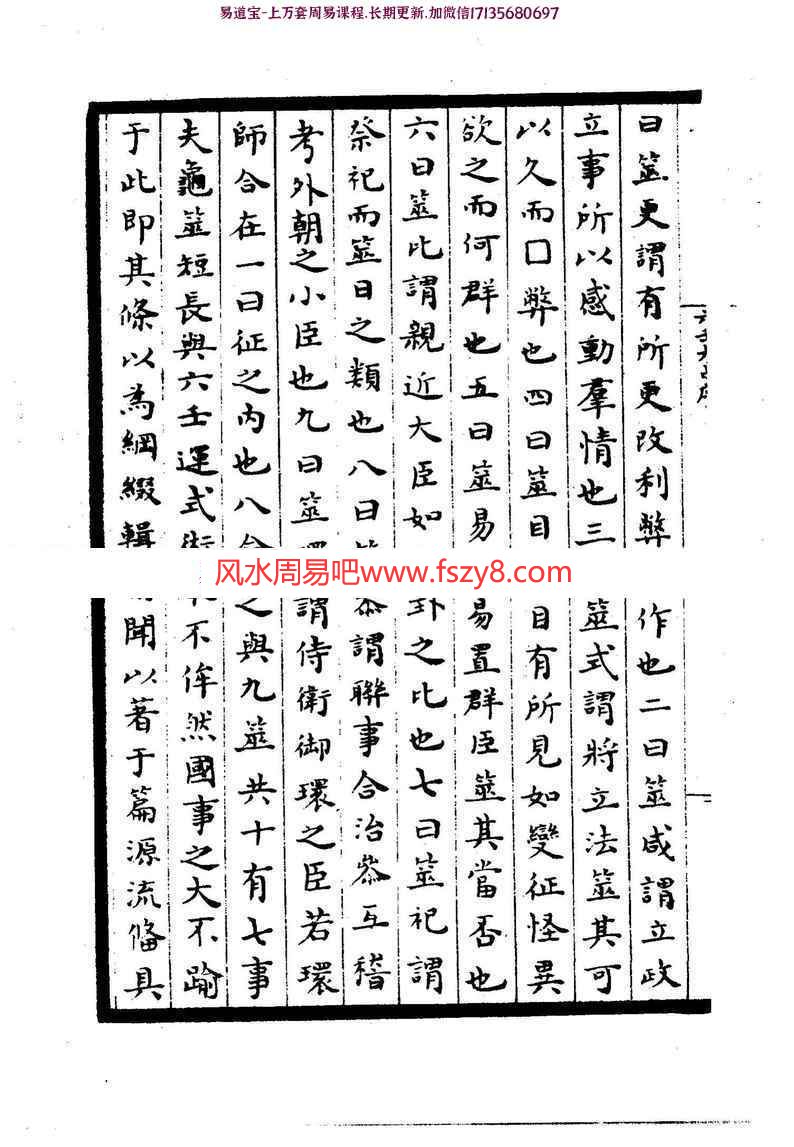 易道宝-上万套周易课程.长期更新.加微信17135680697
曰筮更謂有所更改利弊作也二曰筮咸謂立政
立事所以感動羣情也三筮式謂將立法筮其可
以久而囗弊也四曰筮目目有所見如變征怪異
欲之而何群也五曰筮易易置群臣筮其當否也
六曰筮比謂親近大臣如卦之比也七曰筮祀謂
祭祀而筮日之類也八曰叅謂聯事合治叅互稽
考外朝之小臣也九曰筮環謂侍衛御環之臣若環
師合在一曰征之内也八之與九筮共十有七事
夫龜筮短長與六壬運式不侔然國事之大不踰
于此即其條以為綱綴輯聞以著于篇源流僃具
风水周易吧www.fszy8.com